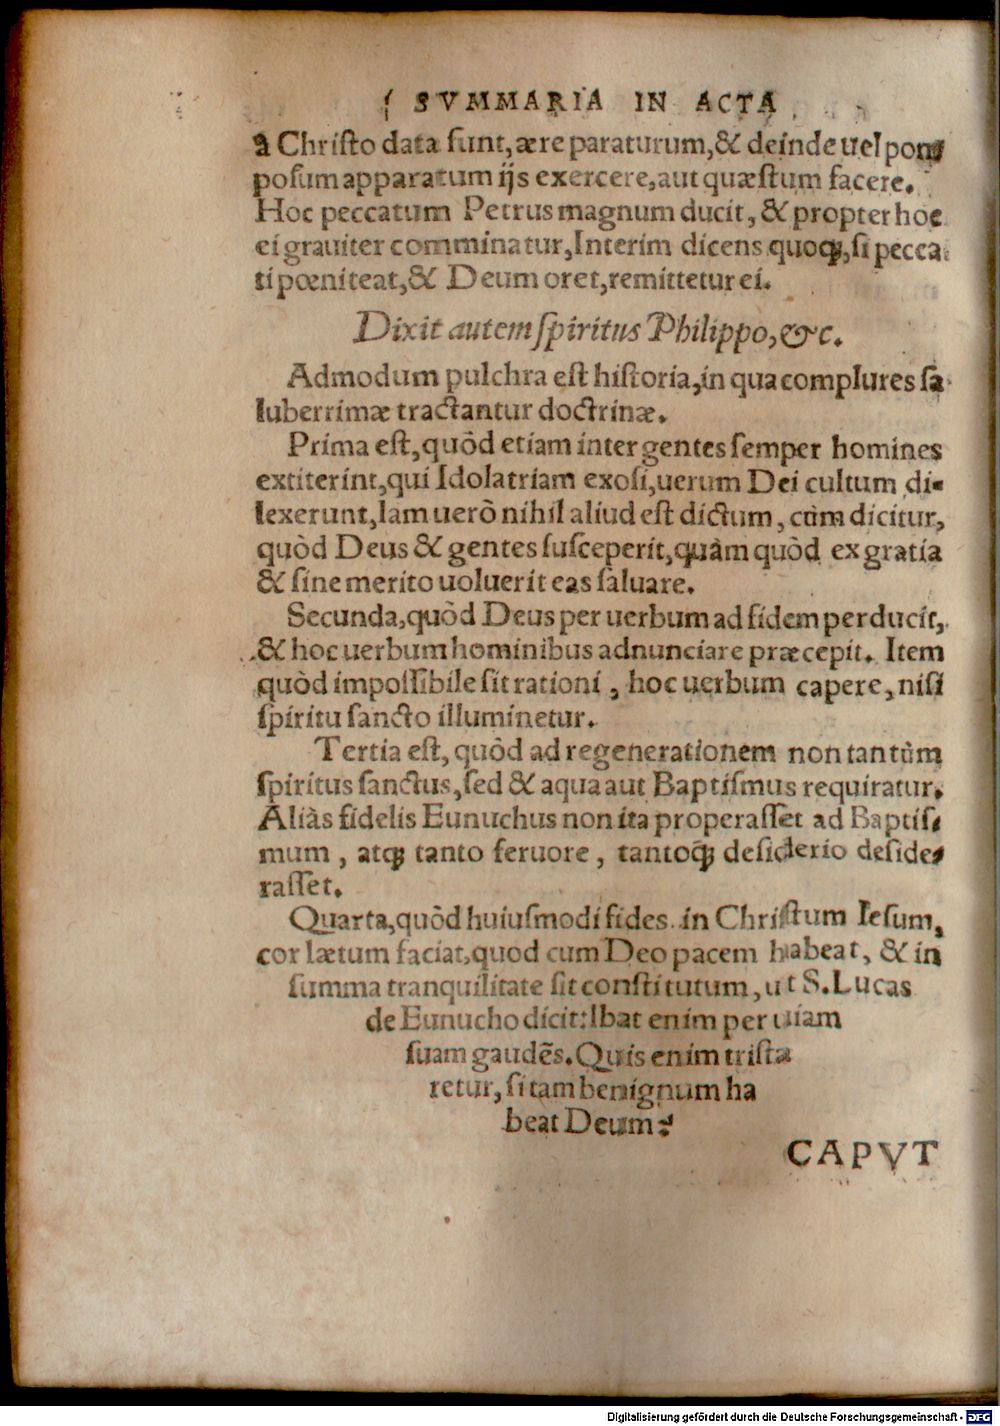 SVMMARIA IN ACTA
à Christo data sunt, ære paraturum, & deinde uel pom
posum apparatum ijs exercere, aut quæstum facere.
Hoc peccatum Petrus magnum ducit, & propter hoc
ei grauiter comminatur, Interim dicens quoq;, si pecca
ti pœniteat, & Deum oret, remittetur ei.
Dixit autem spiritus Philippo, &c.
Admodum pulchra est historia, in qua complures sa
luberrimæ tractantur doctrinæ.
Prima est, quòd etiam inter gentes semper homines
extiterint, qui Idolatriam exosi, uerum Dei cultum di-
lexerunt, Iam uerò nihil aliud est dictum, cùm dicitur,
quòd Deus & gentes susceperit, quàm quòd ex gratia
& sine merito uoluerit eas saluare.
Secunda, quòd Deus per uerbum ad fidem perducit,
& hoc uerbum hominibus adnunciare præcepit. Item
quòd impossibile sit rationi, hoc uerbum capere, nisi
spiritu sancto illuminetur.
Tertia est, quòd ad regenerationem non tantùm
spiritus sanctus, sed & aqua aut Baptismus requiratur.
Aliàs fidelis Eunuchus non ita properasset ad Baptis-
mum, atq; tanto feruore, tantoq; desiderio deside-
rasset.
Quarta, quòd huiusmodi fides in Christum Iesum,
cor lætum faciat, quod cum Deo pacem habeat, & in
summa tranquilitate sit constitutum, ut S. Lucas
de Eunucho dicit: Ibat enim per uiam
suam gaudēs. Quis enim trista
retur, si tam benignum ha
beat Deum?
CAPVT
Digitalisierung gefördert durch die Deutsche Forschungsgemeinschaft - DFG